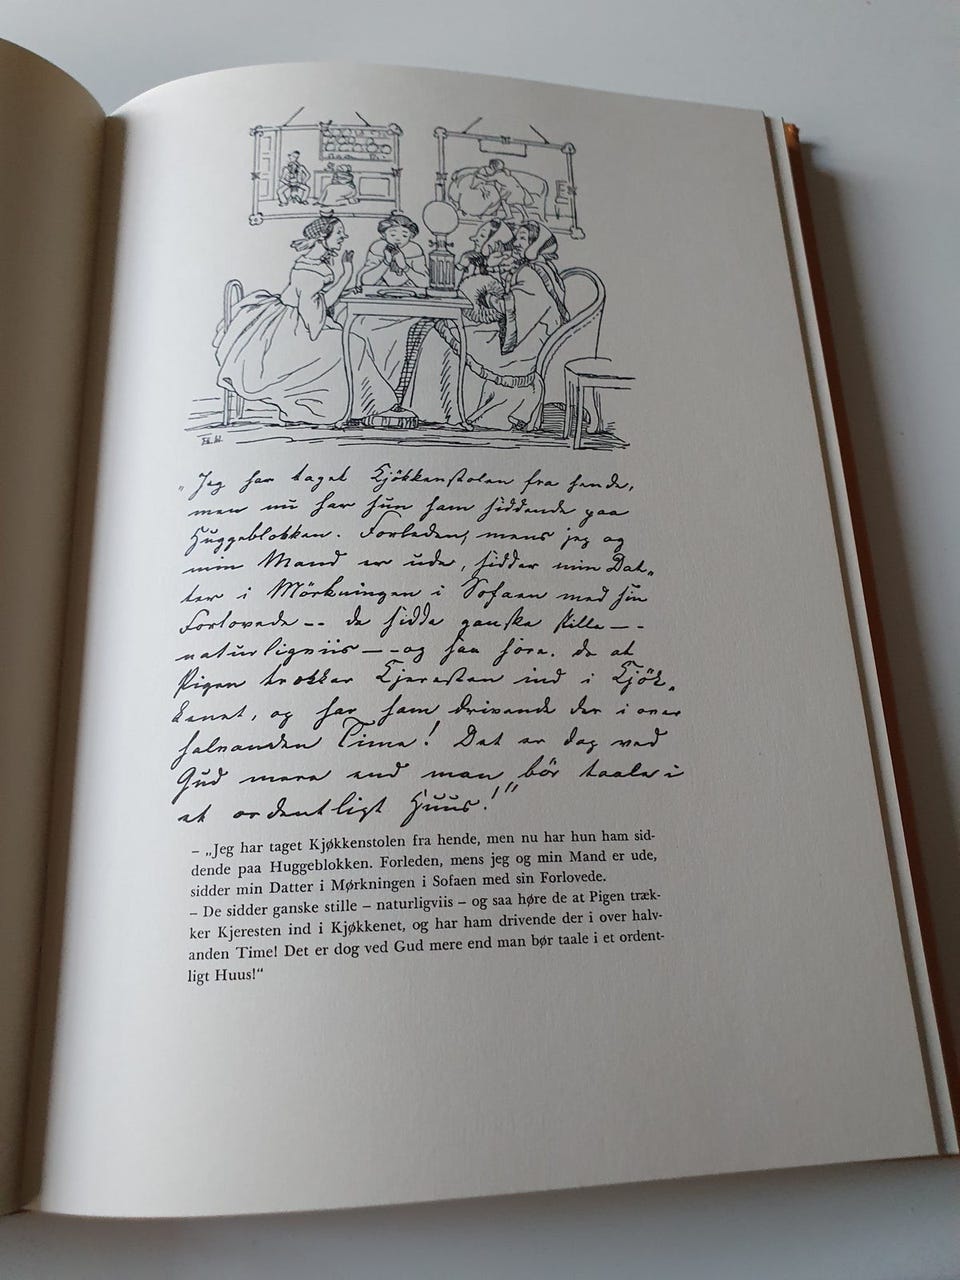 „Jeg har taget Kjökkenstolen fra hende,
men nu har hun ham siddende paa
Huggeblokken. Forleden, mens jeg og
min Mand er ude, sidder min Dat„
ter i Mörkningen i Sofaen med sin
Forlovede -- de sidde ganske stille --
naturligviis -- og saa høre de at
Pigen trækker Kjeresten ind i Kjök„
kenet, og har ham drivende der i over
halvanden Time! Det er dog ved
Gud mere end man bör taale i
et ordentligt Huus!"
– „Jeg har taget Kjøkkenstolen fra hende, men nu har hun ham sid-
dende paa Huggeblokken. Forleden, mens jeg og min Mand er ude,
sidder min Datter i Mørkningen i Sofaen med sin Forlovede.
– De sidder ganske stille – naturligviis – og saa høre de at Pigen træk-
ker Kjeresten ind i Kjøkkenet, og har ham drivende der i over halv-
anden Time! Det er dog ved Gud mere end man bør taale i et ordent-
ligt Huus!“